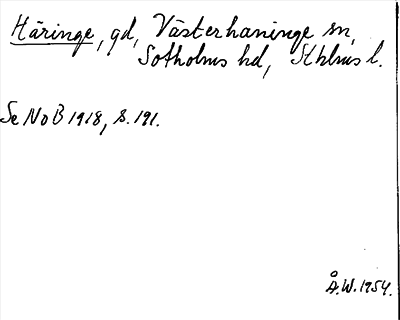 Häringe, gd, Västerhaninge sn,
Sotholms hd, Sthlms l.
Se NoB 1918, s. 191.
Å.W. 1954.